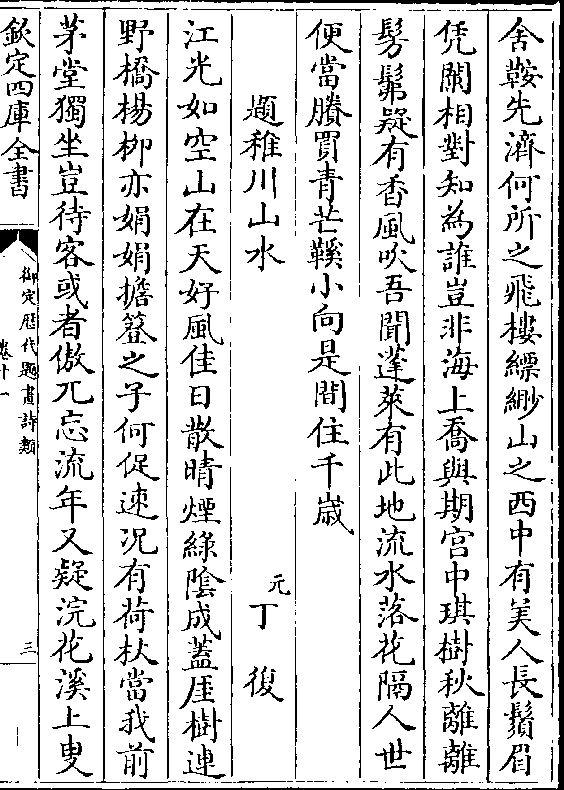 舍鞍先濟何所之飛樓縹緲山之西中有美人長鬚眉
凭闌相對知為誰豈非海上喬與期宫中琪樹秋離離
髣髴疑有香風吹吾聞蓬萊有此地流水落花隔人世
便當賸買青芒鞵小向是間住千歲
題稚川山水
元丁復
江光如空山在天好風佳日散晴煙綠陰成蓋厓樹連
野橋楊柳亦娟娟擔簦之子何促速况有荷杖當我前
茅堂獨坐豈待客或者傲兀忘流年又疑浣花溪上叟
欽定四庫全書
御定歷代題畫詩類
卷十一
三